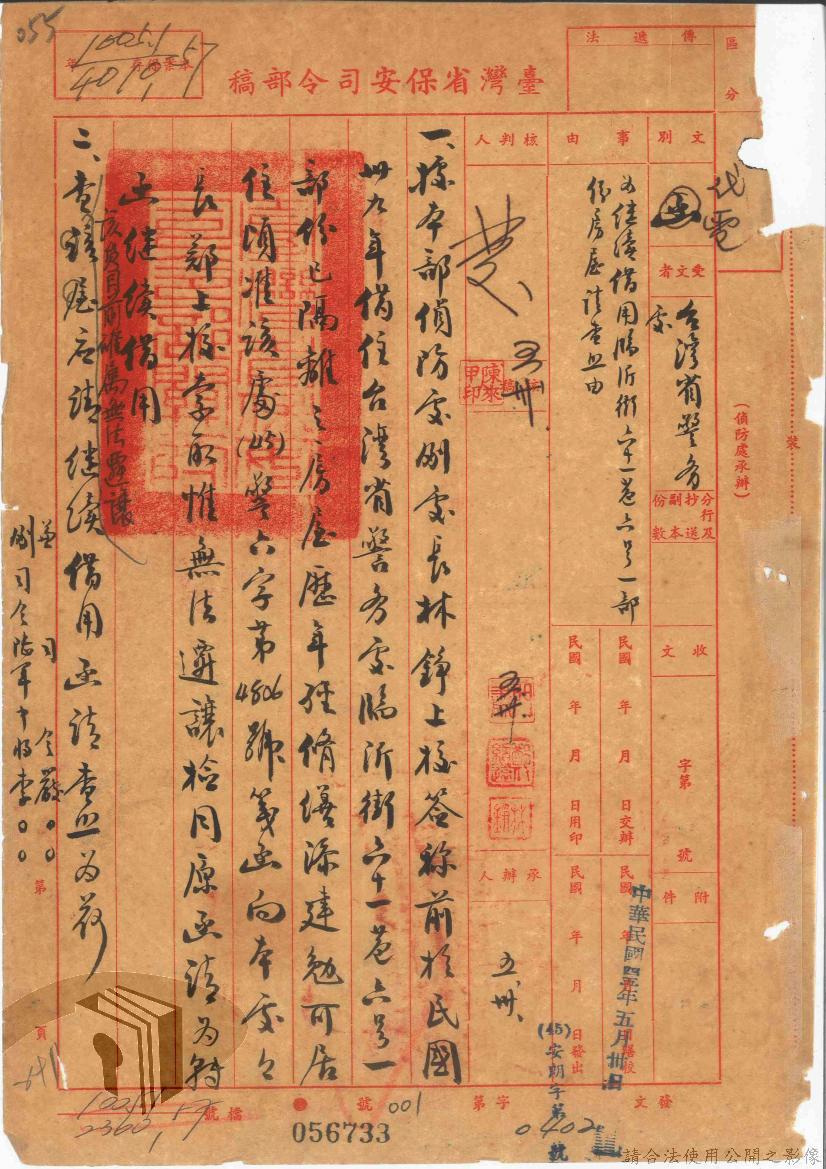 055
10051
40 10 57
臺灣省保安司令部稿
傳遞法
區分
文別
代電
受文者
台灣省警务
處
分行及
抄送
副本
份數
收文
字第
號
附件
事由
为继續借用臨沂街六十一巷六号一部
份房屋請查照由
民國 年 月 日交辦
民國 年 月 日用印
民國 年 月
民國 年 月 日發出
中華民國四五年五月卅日
(45)安朝字第 號
0402
核判人
五卅
陳來甲印
五卅
承辦人
五卅
(偵防處承辦)
裝
一、據本部偵防處副處長林錚上校簽称前於民國
卅九年借住台湾省警务處臨沂街六十一巷六号一
部份已隔離之房屋歷年經脩繕添建勉可居
住頃准該處(45)警六字第4806號箋函向本處
長鄭上校索取惟無法遷讓檢同原函請为轉
函继續借用
二、查
該員目前確属無法遷讓
請继續借用函請查照为荷
兼司令嚴○○
副司令陸軍中將李○○
第
頁
發文
字第
001
號
056733
檔號
10051
2360 57
請合法使用公開之影像